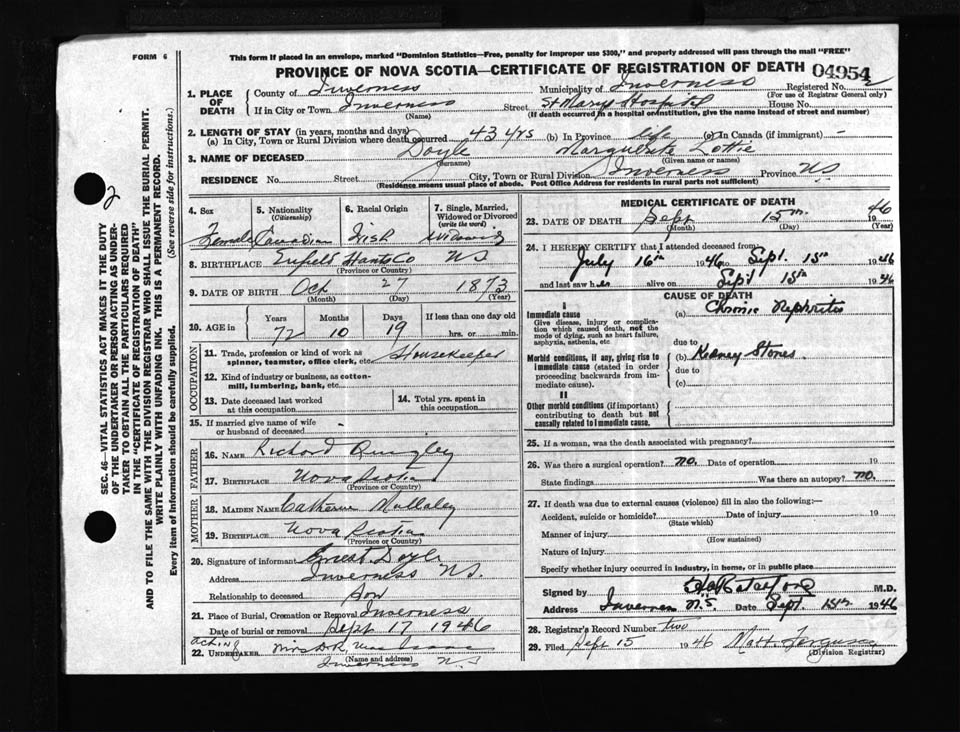 FORM 6
This form if placed in an envelope, marked "Dominion Statistics—Free, penalty for improper use $300," and properly addressed will pass through the mail "FREE"
PROVINCE OF NOVA SCOTIA—CERTIFICATE OF REGISTRATION OF DEATH 04954
1. PLACE OF DEATH
County of Inverness Municipality of Inverness Registered No.
(For use of Registrar General only)
If in City or Town Inverness Street St Marys Hospital House No.
(Name) (If death occurred in a hospital or institution, give the name instead of street and number)
2. LENGTH OF STAY (in years, months and days)
(a) In City, Town or Rural Division where death occurred 43 yrs (b) In Province life (c) In Canada (if immigrant) -
3. NAME OF DECEASED Doyle Marguerite Lottie
(Surname) (Given name or names)
RESIDENCE No. Street City, Town or Rural Division Inverness Province NS
(Residence means usual place of abode. Post Office Address for residents in rural parts not sufficient)
4. Sex Female
5. Nationality (Citizenship) Canadian
6. Racial Origin Irish
7. Single, Married, Widowed or Divorced (write the word) Widow
8. BIRTHPLACE Enfield Hants Co NS
(Province or Country)
9. DATE OF BIRTH Oct 27 1873
(Month) (Day) (Year)
10. AGE in Years Months Days If less than one day old
72 10 19 hrs. or min.
OCCUPATION
11. Trade, profession or kind of work as spinner, teamster, office clerk, etc. Housekeeper
12. Kind of industry or business, as cotton-mill, lumbering, bank, etc.
13. Date deceased last worked at this occupation
14. Total yrs. spent in this occupation
15. If married give name of wife or husband of deceased -
FATHER
16. NAME Richard Quigley
17. BIRTHPLACE Nova Scotia
(Province or Country)
MOTHER
18. MAIDEN NAME Catherine Mullaley
19. BIRTHPLACE Nova Scotia
(Province or Country)
20. Signature of informant Ernest Doyle
Address Inverness NS.
Relationship to deceased Son
21. Place of Burial, Cremation or Removal Inverness
Date of burial or removal Sept 17 1946
acting
22. UNDERTAKER Mrs D.R. Mac Isaac
(Name and address)
Inverness NS
MEDICAL CERTIFICATE OF DEATH
23. DATE OF DEATH Sept 15th 1946
(Month) (Day) (Year)
24. I HEREBY CERTIFY that I attended deceased from
July 16th 1946 to Sept. 15th 1946
and last saw her alive on Sept 15th 1946
CAUSE OF DEATH
I
Immediate cause (a) Chronic Nephritis
Give disease, injury or complication which caused death, not the mode of dying, such as heart failure, asphyxia, asthenia, etc
due to
Morbid conditions, if any, giving rise to immediate cause (stated in order proceeding backwards from immediate cause). (b) Kidney Stones
due to
(c)
II
Other morbid conditions (if important) contributing to death but not causally related to immediate cause.
25. If a woman, was the death associated with pregnancy?
26. Was there a surgical operation? no. Date of operation 19
State findings Was there an autopsy? no.
27. If death was due to external causes (violence) fill in also the following:—
Accident, suicide or homicide? Date of injury 19
(State which)
Manner of injury
(How sustained)
Nature of injury
Specify whether injury occurred in industry, in home, or in public place
Signed by M.D.
Address Inverness N.S. Date Sept. 15th 1946
28. Registrar's Record Number two
29. Filed Sept 15 1946 Matt. Ferguson
(Division Registrar)
SEC. 46—VITAL STATISTICS ACT MAKES IT THE DUTY
OF THE UNDERTAKER OR PERSON ACTING AS UNDERTAKER TO OBTAIN ALL THE PARTICULARS REQUIRED
IN THE "CERTIFICATE OF REGISTRATION OF DEATH"
AND TO FILE THE SAME WITH THE DIVISION REGISTRAR WHO SHALL ISSUE THE BURIAL PERMIT.
WRITE PLAINLY WITH UNFADING INK. THIS IS A PERMANENT RECORD.
Every item of Information should be carefully supplied. (See reverse side for instructions.)
2